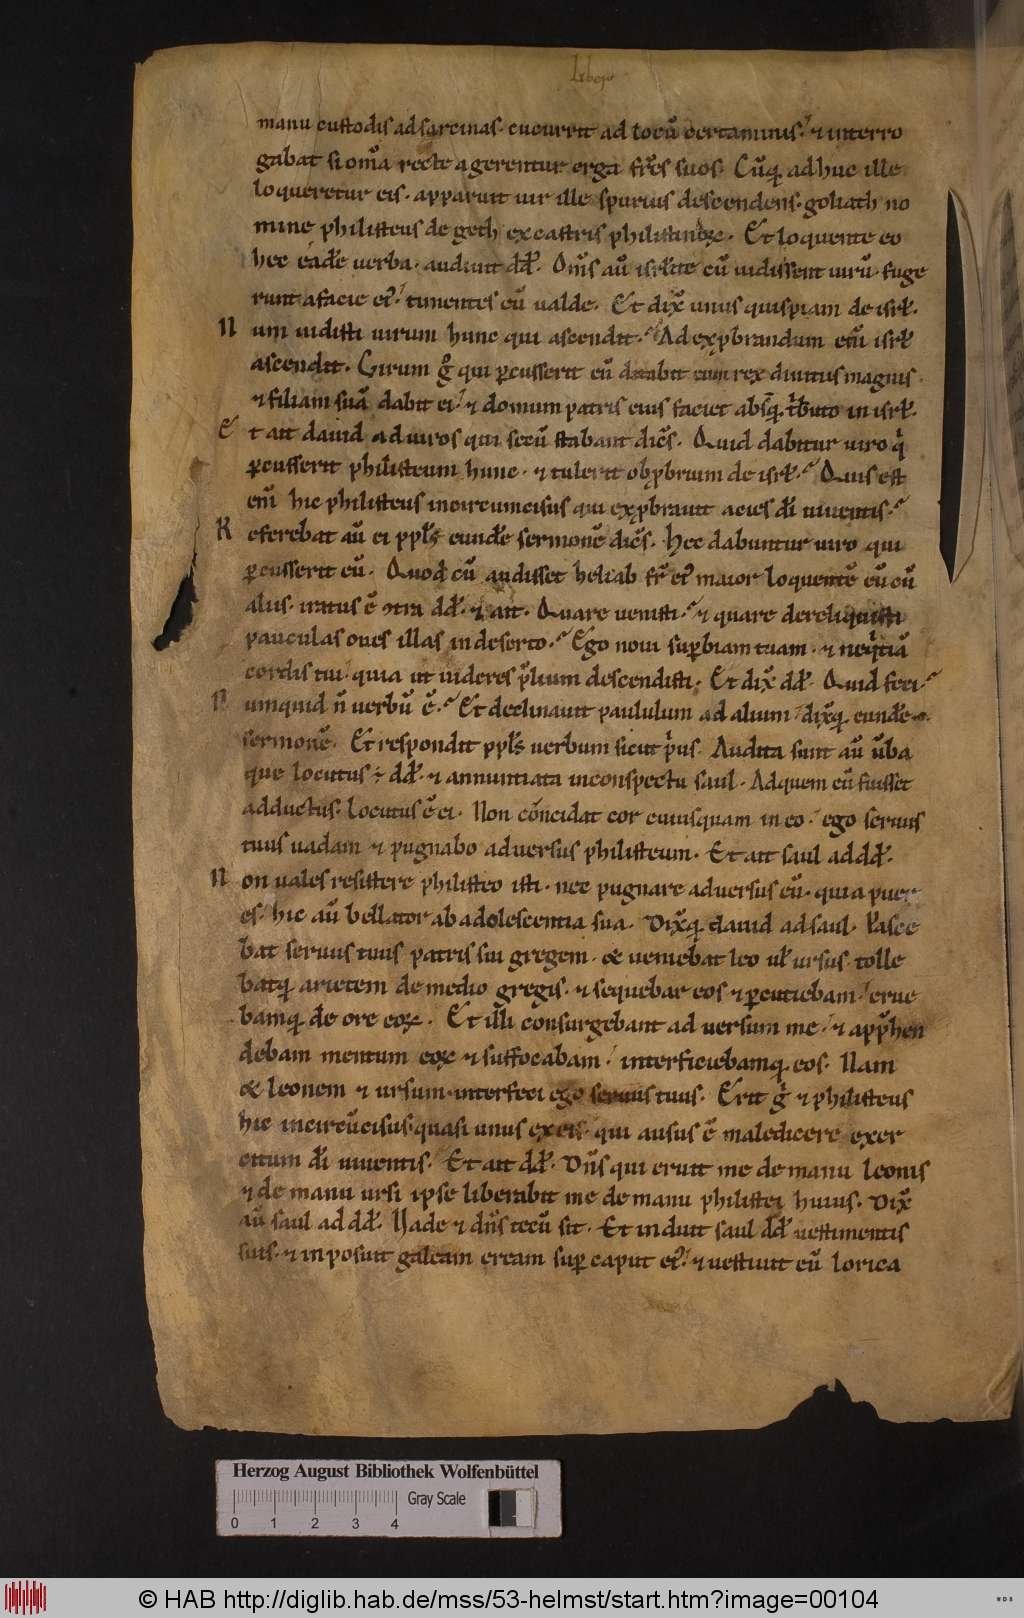 Liber
manu custodis ad sarcinas. cucurrit ad locū certaminis. ⁊ interro
gabat si om̄a recte agerentur erga fr̄es suos. Cūq; adhuc ille
loqueretur eis. apparuit uir ille spurius descendens. goliath no
mine philisteus de geth ex castris philistinoꝝ. Et loquente eo
hec eadē uerba. audiuit dd̄. Om̄s aū isrl̄ite cū uidissent uirū. fuge
runt a facie ei᷒. timentes eū ualde. Et dix̄ unus quispiam de isrl̄.
N um uidisti uirum hunc qui ascendit. Ad exp̱brandum enī isrl̄
ascendit. Uirum g̊ qui p̱cusserit eū ditabit eum rex diuitiis magnis.
⁊ filiam suā dabit ei. ⁊ domum patris eius faciet absq; t̄buto in isrl̄.
E t ait dauid ad uiros qui secū stabant dic̄s. Quid dabitur uiro q̄
p̱cusserit philisteum hunc. ⁊ tulerit obp̱brium de isrl̄. Quis est
enī hic philisteus incircumcisus qui exp̱brauit acies dī uiuentis.
R eferebat aū ei ppl̄s eundē sermonē dic̄s. Hec dabuntur uiro qui
p̱cusserit eū. Quod cū audisset heliab fr̄ ei᷒ maior loquentē eū cū
aliis. iratus ē ɔtra dd̄. ⁊ ait. Quare uenisti. ⁊ quare dereliquisti
pauculas oues illas in deserto. Ego noui sup̱biam tuam. ⁊ neq̄tiā
cordis tui. quia ut uideres p̄lium descendisti. Et dix̄ dd̄. Quid feci.
N umquid n̄ uerbū ē. Et declinauit paululum ad alium. dix̄q; eundē
sermonē. Et respondit ppl̄s uerbum sicut p̄us. Audita sunt aū ūba
que locutus ÷ dd̄. ⁊ annuntiata in conspectu saul. Ad quem cū fuisset
adductus. locutus ē ei. Non concidat cor cuiusquam in eo. ego seruus
tuus uadam ⁊ pugnabo aduersus philisteum. Et ait saul ad dd̄.
N on uales resistere philisteo isti. nec pugnare aduersus eū. quia puer
es. hic aū bellator ab adolescentia sua. Dix̄q; dauid ad saul. Pasce
bat seruus tuus patris sui gregem. & ueniebat leo ul̄ ursus. tolle
batq; arietem de medio gregis. ⁊ sequebar eos ⁊ p̱cutiebam. erue
bamq; de ore eoꝝ. Et illi consurgebant aduersum me. ⁊ app̄hen
debam mentum eoꝝ ⁊ suffocabam. interficiebamq; eos. Nam
& leonem ⁊ ursum interfeci ego seruus tuus. Erit g̊ ⁊ philisteus
hic incircūcisus. quasi unus ex eis. qui ausus ē maledicere exer
citum dī uiuentis. Et ait dd̄. Dn̄s qui eruit me de manu leonis
⁊ de manu ursi ipse liberabit me de manu philistei huius. Dix̄
aū saul ad dd̄. Uade ⁊ dn̄s tecū sit. Et induit saul dd̄ uestimentis
suis. ⁊ inposuit galeam eream sup̱ caput ei᷒. ⁊ uestiuit eū lorica
Herzog August Bibliothek Wolfenbüttel
Gray Scale
0 1 2 3 4
© HAB http://diglib.hab.de/mss/53-helmst/start.htm?image=00104